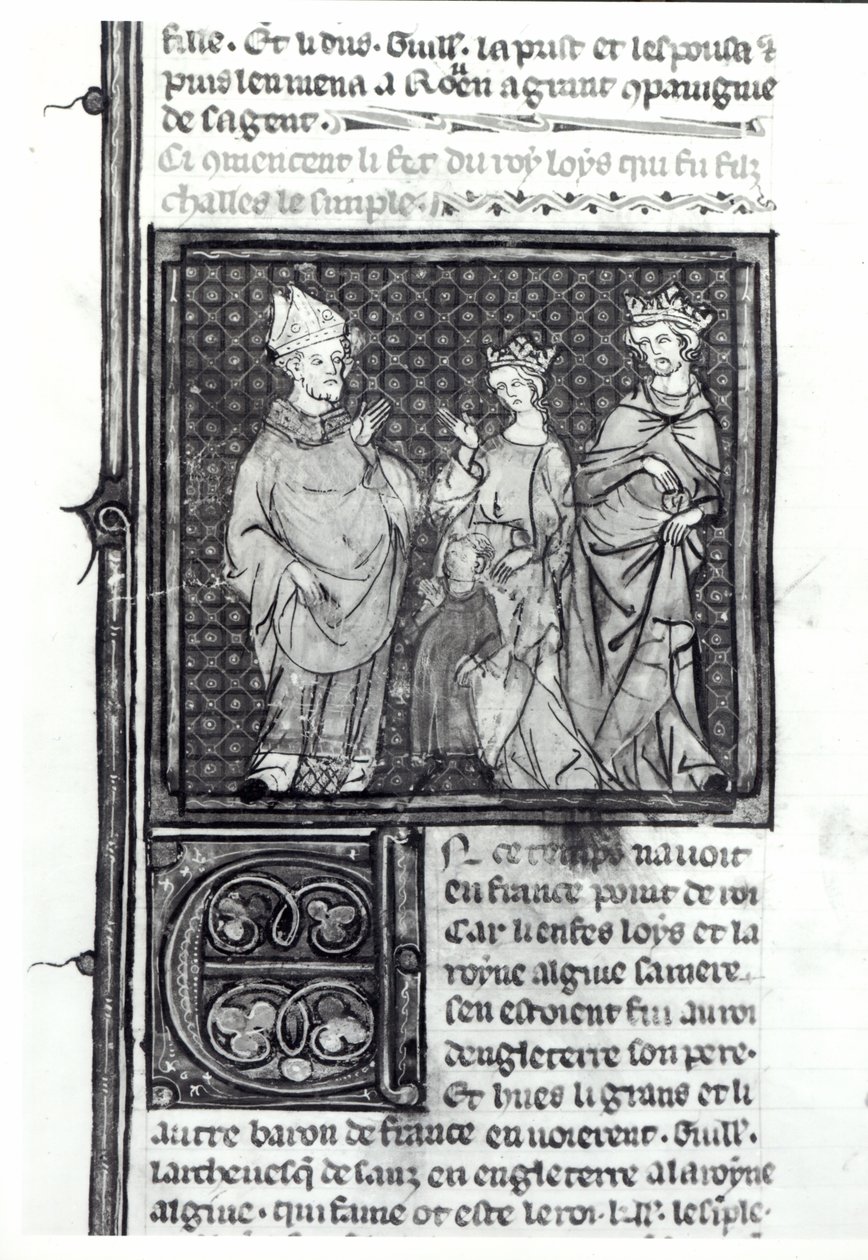 fille. Et li dus. Guill. la prist et lespousa et
puis len mena a Roen a grant 9paingnie
de sa gent.
Ci 9mencent li fet du roy loys qui fu filz
challes le simple.
EN ce temps navoit
en france point de roi
Car li enfes loys et la
royne algiue sa mere
sen estoient fui au roi
dengleterre son pere.
Et hues li grans et li
autre baron de france envoierent. Guill.
larchevesq̃ de sanz en engleterre a la royne
algiue. qui fame ot este le roi. le sĩple.